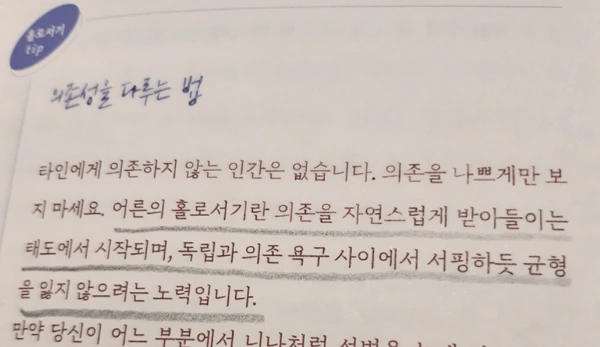 홀로서기
tip
의존성을 다루는 법
타인에게 의존하지 않는 인간은 없습니다. 의존을 나쁘게만 보
지 마세요. 어른의 홀로서기란 의존을 자연스럽게 받아들이는
태도에서 시작되며, 독립과 의존 욕구 사이에서 서핑하듯 균형
을 잃지 않으려는 노력입니다.
만약 당신이 어느 부분에서 니나처럼